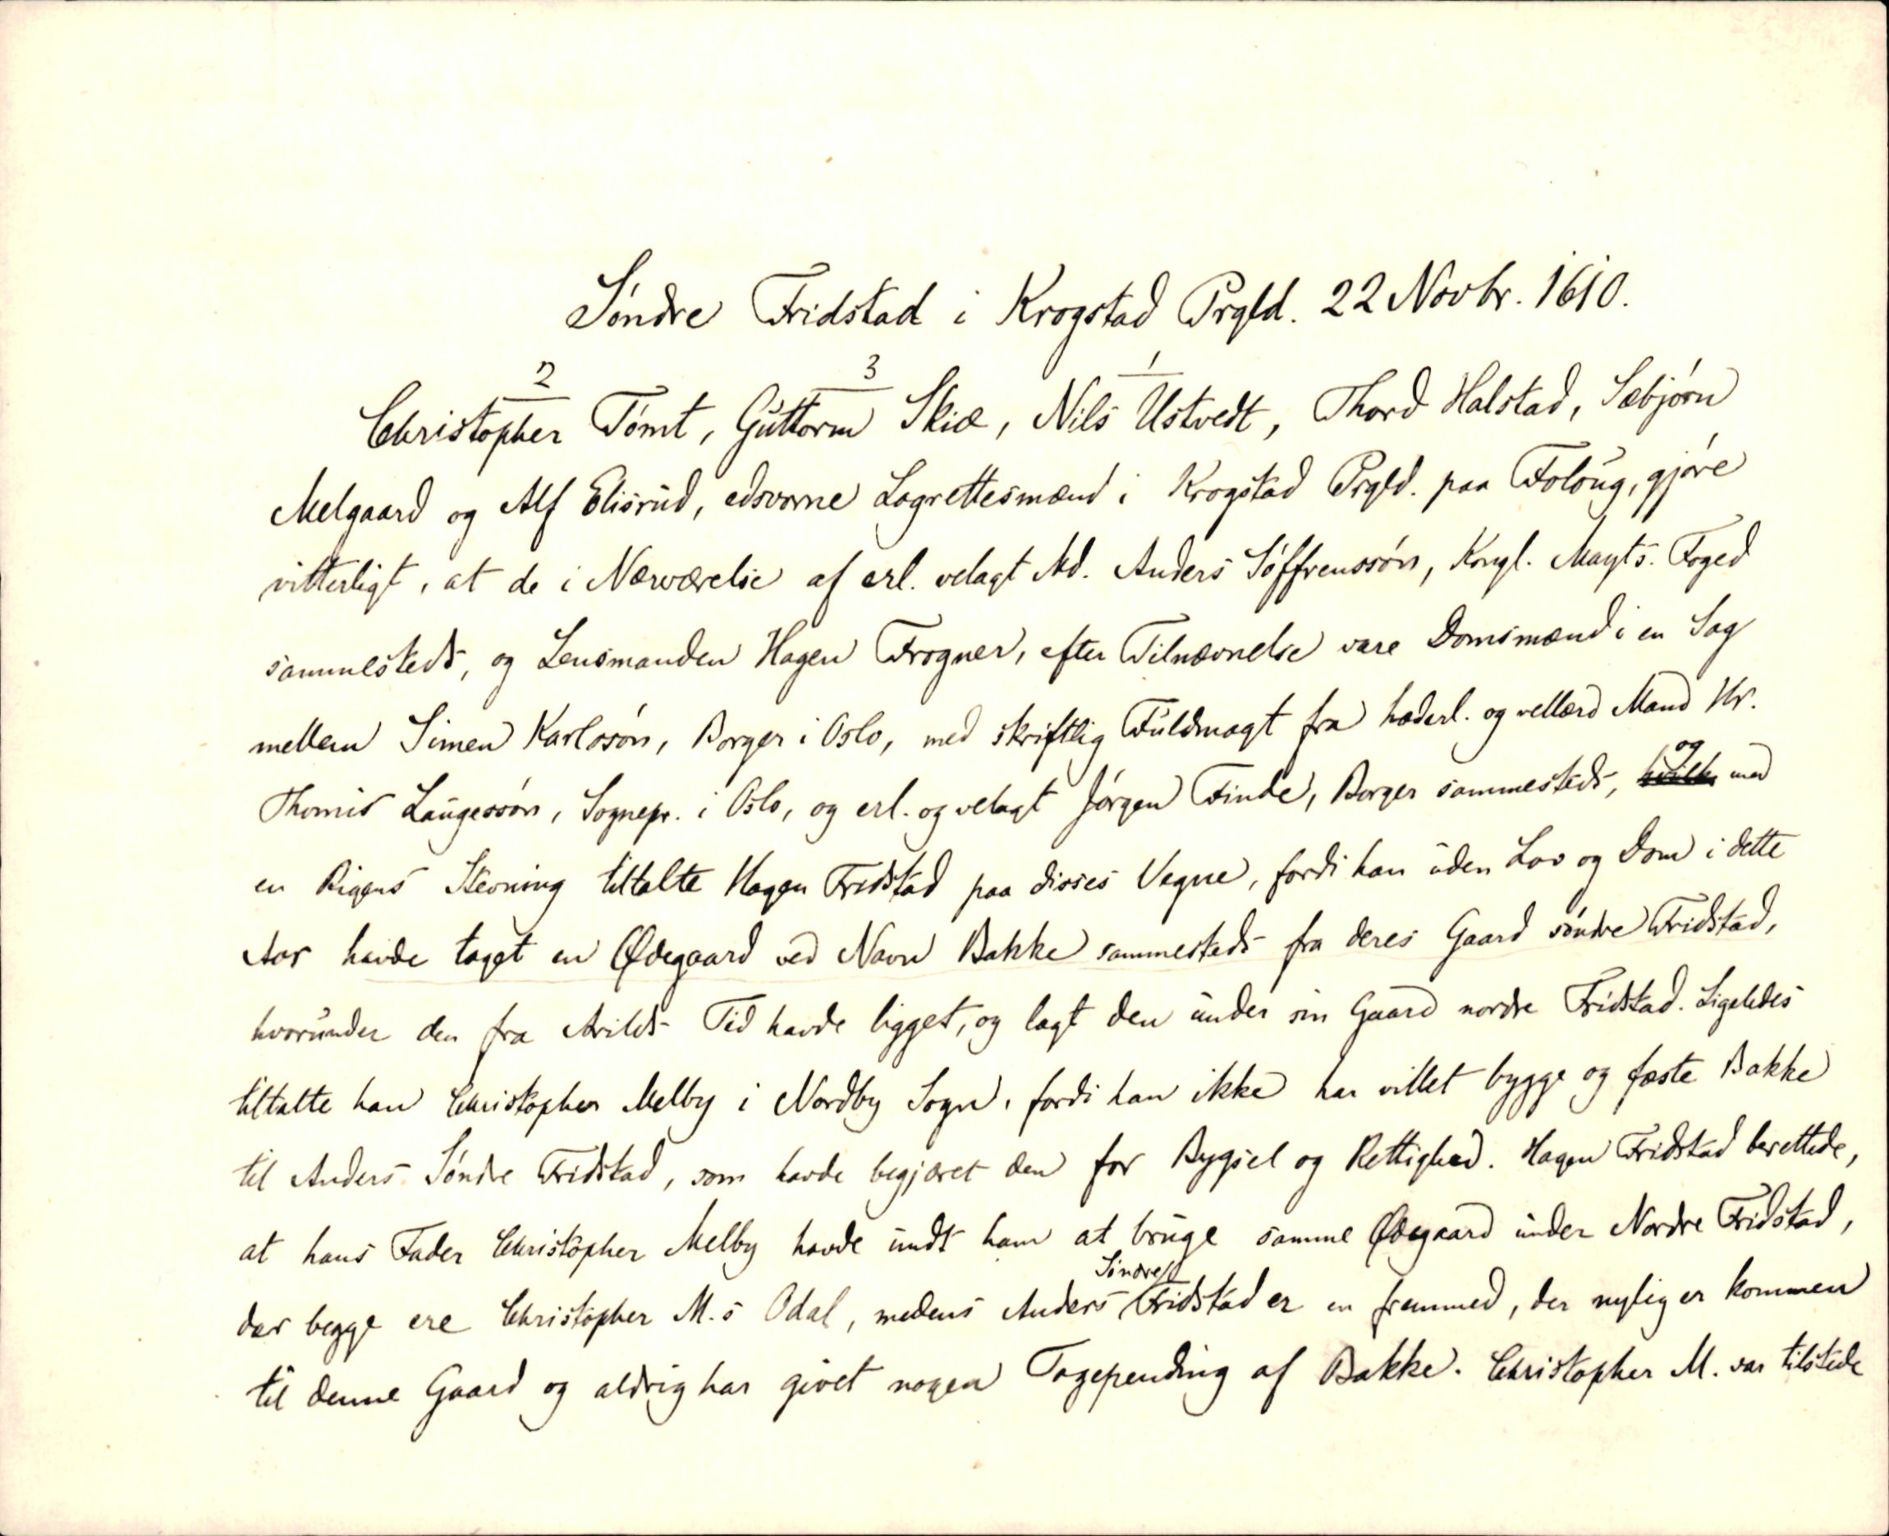 Søndre Fridstad i Krogstad Prgld. 22 Novbr. 1610.
2 3 1
Christopher Tømt, Guttorm Skiæ, Nils Ustvedt, Thord Halstad, Sæbjørn
Melgaard og Alf Elisrud, edsvorne Lagrettesmænd i Krogstad Prgld. paa Foloug, gjøre
vitterligt, at de i Nærværelse af erl. velagt Md. Anders Søffrenssøn, Kongl. Mayts. Foged
sammesteds, og Lensmanden Hagen Frogner, efter Tilnævnelse vare Domsmænd i en Sag
mellem Simen Karlssøn, Borger i Oslo, med skriftlig Fuldmagt fra hæderl. og vellærd Mand Hr.
Thomis Laugessøn, Sognepr. i Oslo, og erl. og velagt Jørgen Finde, Borger sammesteds, og med
en Rigens Stevning tiltalte Hagen Fridstad paa disses Vegne, fordi han uden Lov og Dom i dette
Aar havde taget en Ødegaard ved Navn Bakke sammesteds fra deres Gaard søndre Fridstad,
hvorunder den fra Arilds Tid havde ligget, og lagt den under sin Gaard nordre Fridstad. Ligeledes
tiltalte han Christopher Melby i Nordby Sogn, fordi han ikke har villet bygge og fæste Bakke
til Anders Søndre Fridstad, som havde begjæret den for Bygsel og Rettighed. Hagen Fridstad berettede,
at hans Fader Christopher Melby havde undt ham at bruge samme Ødegaard under Nordre Fridstad,
der begge ere Christopher M.s Odal, medens Anders Søndre Fridstad er en fremmed, der nylig er kommen
til denne Gaard og aldrig har givet nogen Tagepending af Bakke. Christopher M. var tilstede